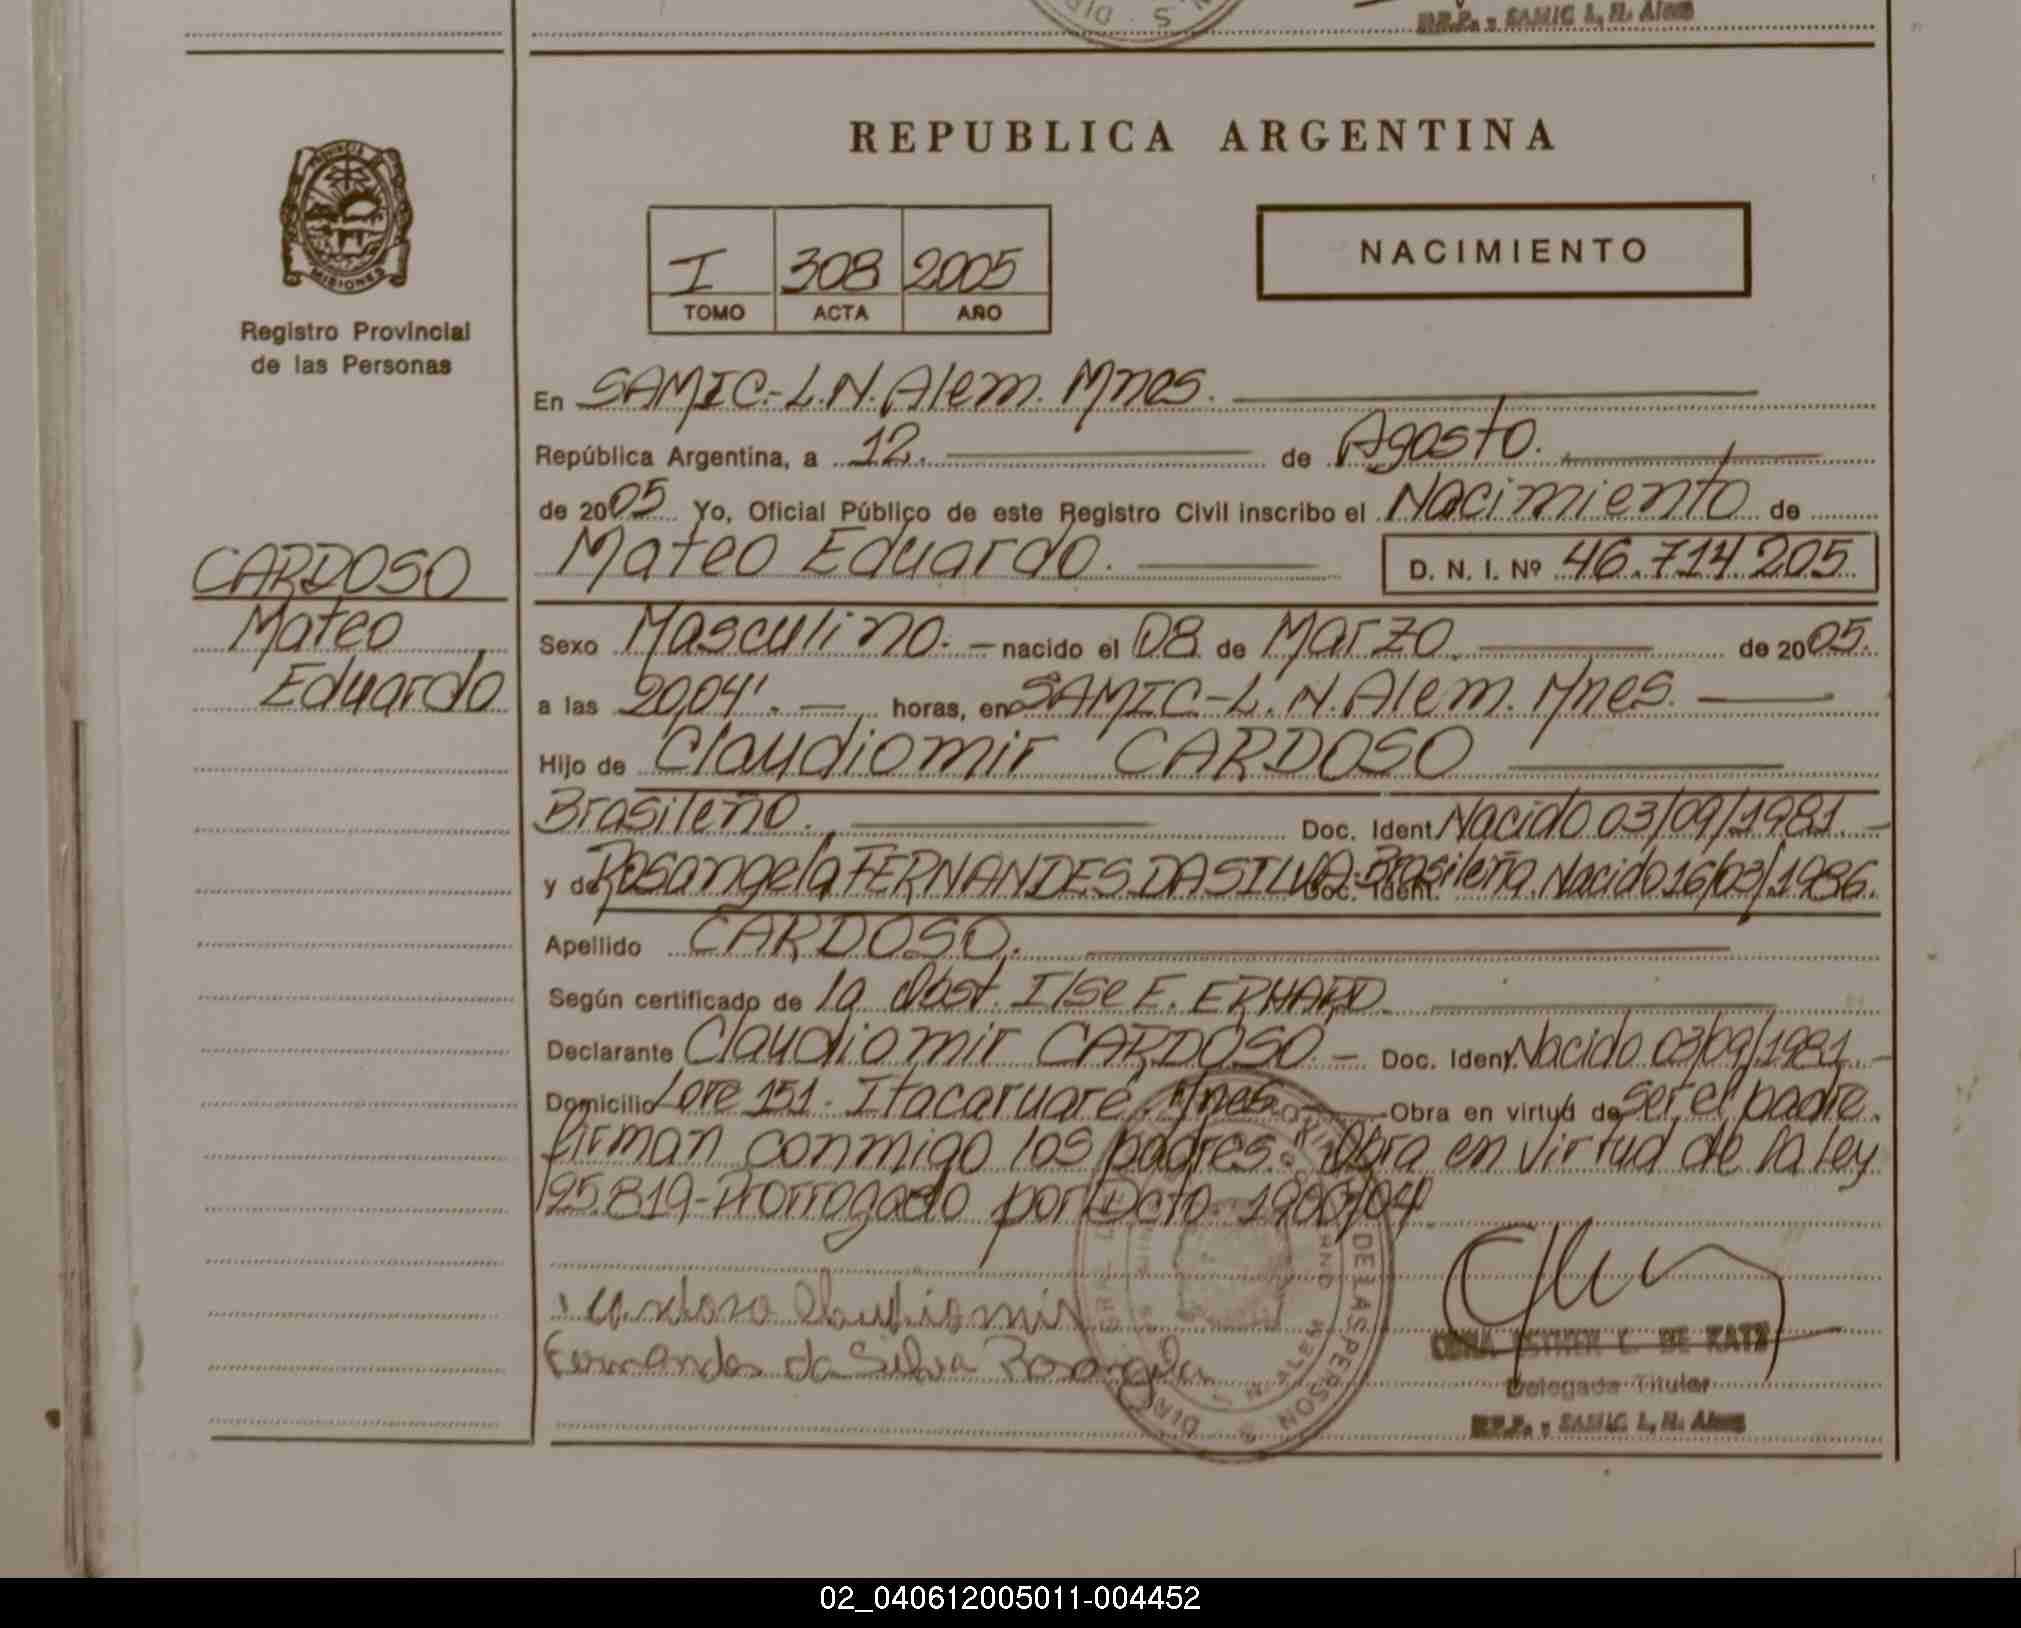 R.P.P. - SAMIC L. N. Alem
REPUBLICA ARGENTINA
PROVINCIA DE
MISIONES
Registro Provincial
de las Personas
I 308 2005
TOMO ACTA AÑO
NACIMIENTO
En SAMIC.-L.N. Alem. Mnes.
República Argentina, a 12. de Agosto.
de 2005 Yo, Oficial Público de este Registro Civil inscribo el Nacimiento de
Mateo Eduardo. D. N. I. Nº 46.714.205
CARDOSO
Mateo
Eduardo
Sexo Masculino. - nacido el 08 de Marzo. de 2005.
a las 20,04'. - horas, en SAMIC-L.N. Alem. Mnes.
Hijo de Claudiomir CARDOSO
Brasileño. Doc. Ident. Nacido 03/09/1981.-
y de Rosangela FERNANDES DA SILVA. Brasileña. Doc. Ident. Nacido 16/03/1986.
Apellido CARDOSO.
Según certificado de la Obst. Ilse E. ERHARD.
Declarante Claudiomir CARDOSO. - Doc. Ident. Nacido 03/09/1981.-
Domicilio Lote 151. Itacaruaré. Mnes. Obra en virtud de ser el padre.
firman conmigo los padres. Obra en virtud de la ley
25.819-Prorrogado por Dcto. 1900/04.
Cardoso Claudiomir
Fernandes da Silva Rosangela
DE LAS PERSONAS
L. N. ALEM
DE KATZ
Delegada Titular
R.P.P. - SAMIC L. N. Alem
02_040612005011-004452